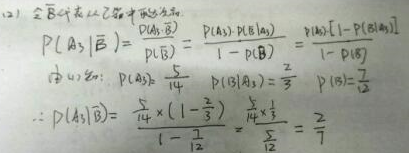 (2) 令B̄代表从乙箱中取出
P(A₃|B̄) = P(A₃·B̄)/P(B̄) = P(A₃)·P(B̄|A₃)/(1-P(B)) = P(A₃)·[1-P(B|A₃)]/(1-P(B))
由(1)知: P(A₃)= 5/14 P(B|A₃)= 2/3 P(B)= 7/12
∴ P(A₃|B̄)= (5/14×(1-2/3))/(1-7/12) = (5/14×1/3)/(5/12) = 2/7